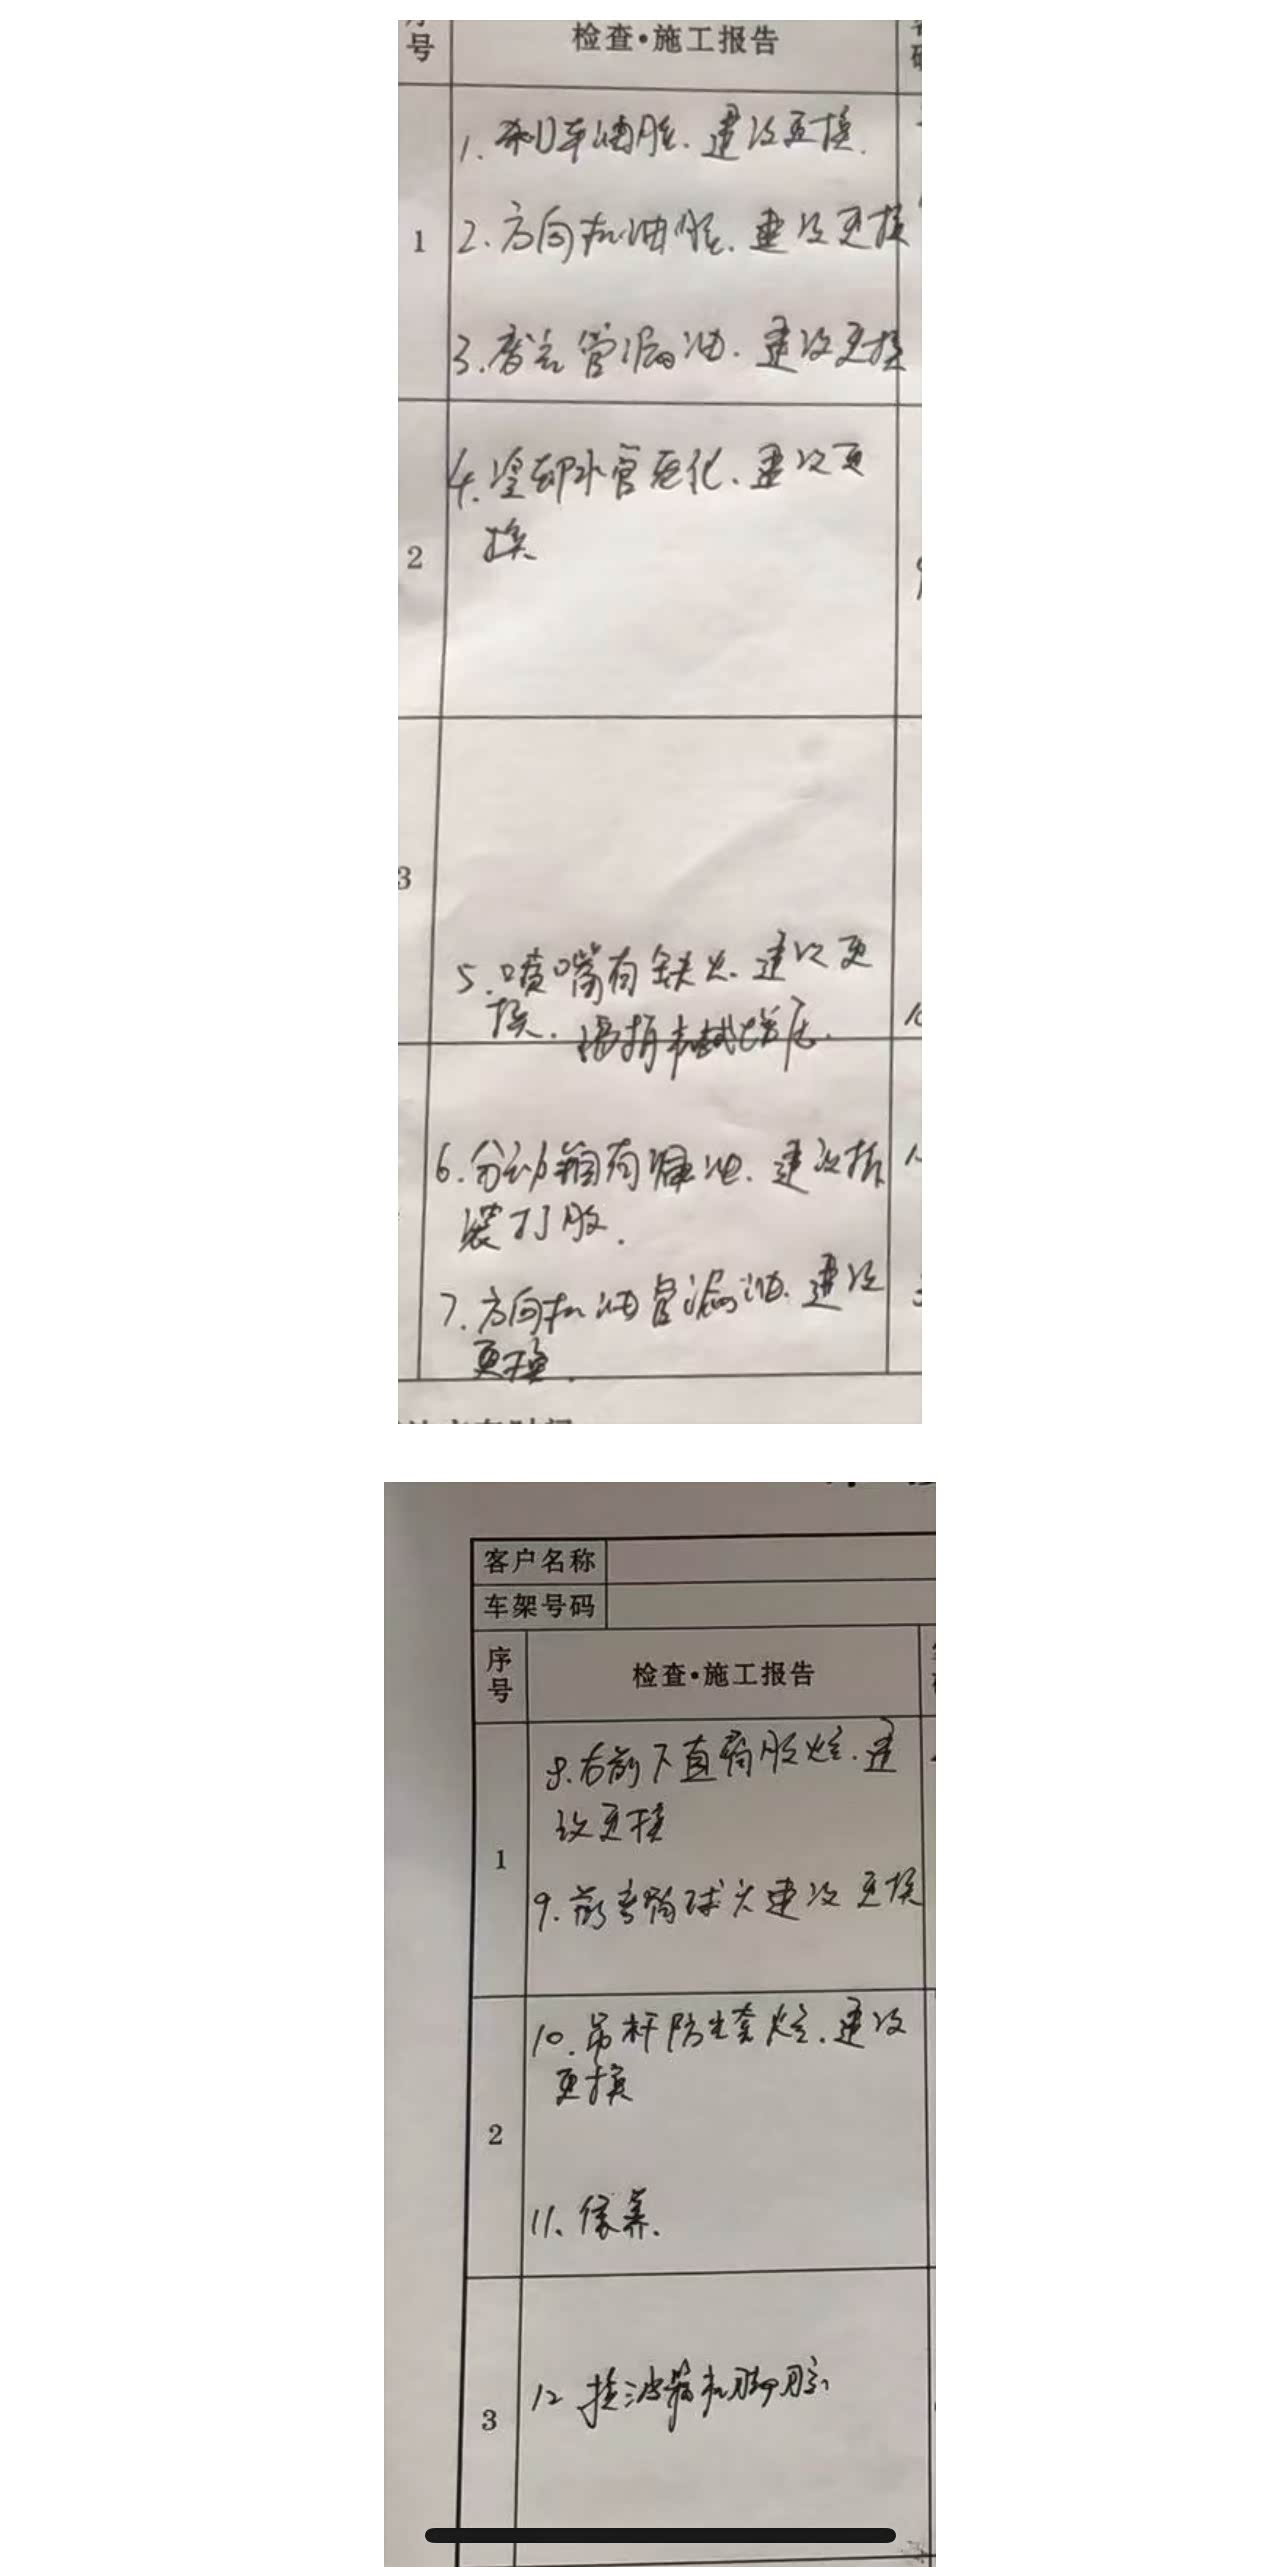 序号 检查·施工报告
1
1. 刹车油脏. 建议更换.
2. 方向机油脏. 建议更换
3. 废气管漏油. 建议更换
2
4. 冷却水管老化. 建议更
换
3
5. 喷嘴有缺火. 建议更
换.
6. 分动箱有漏油. 建议拆
装打胶.
7. 方向机油管漏油. 建议
更换.
客户名称
车架号码
序号 检查·施工报告
1
8. 右前下直臂胶烂. 建
议更换
9. 前弯臂球头建议更换
2
10. 吊杆防尘套烂. 建议
更换
11. 保养.
3
12 机脚胶